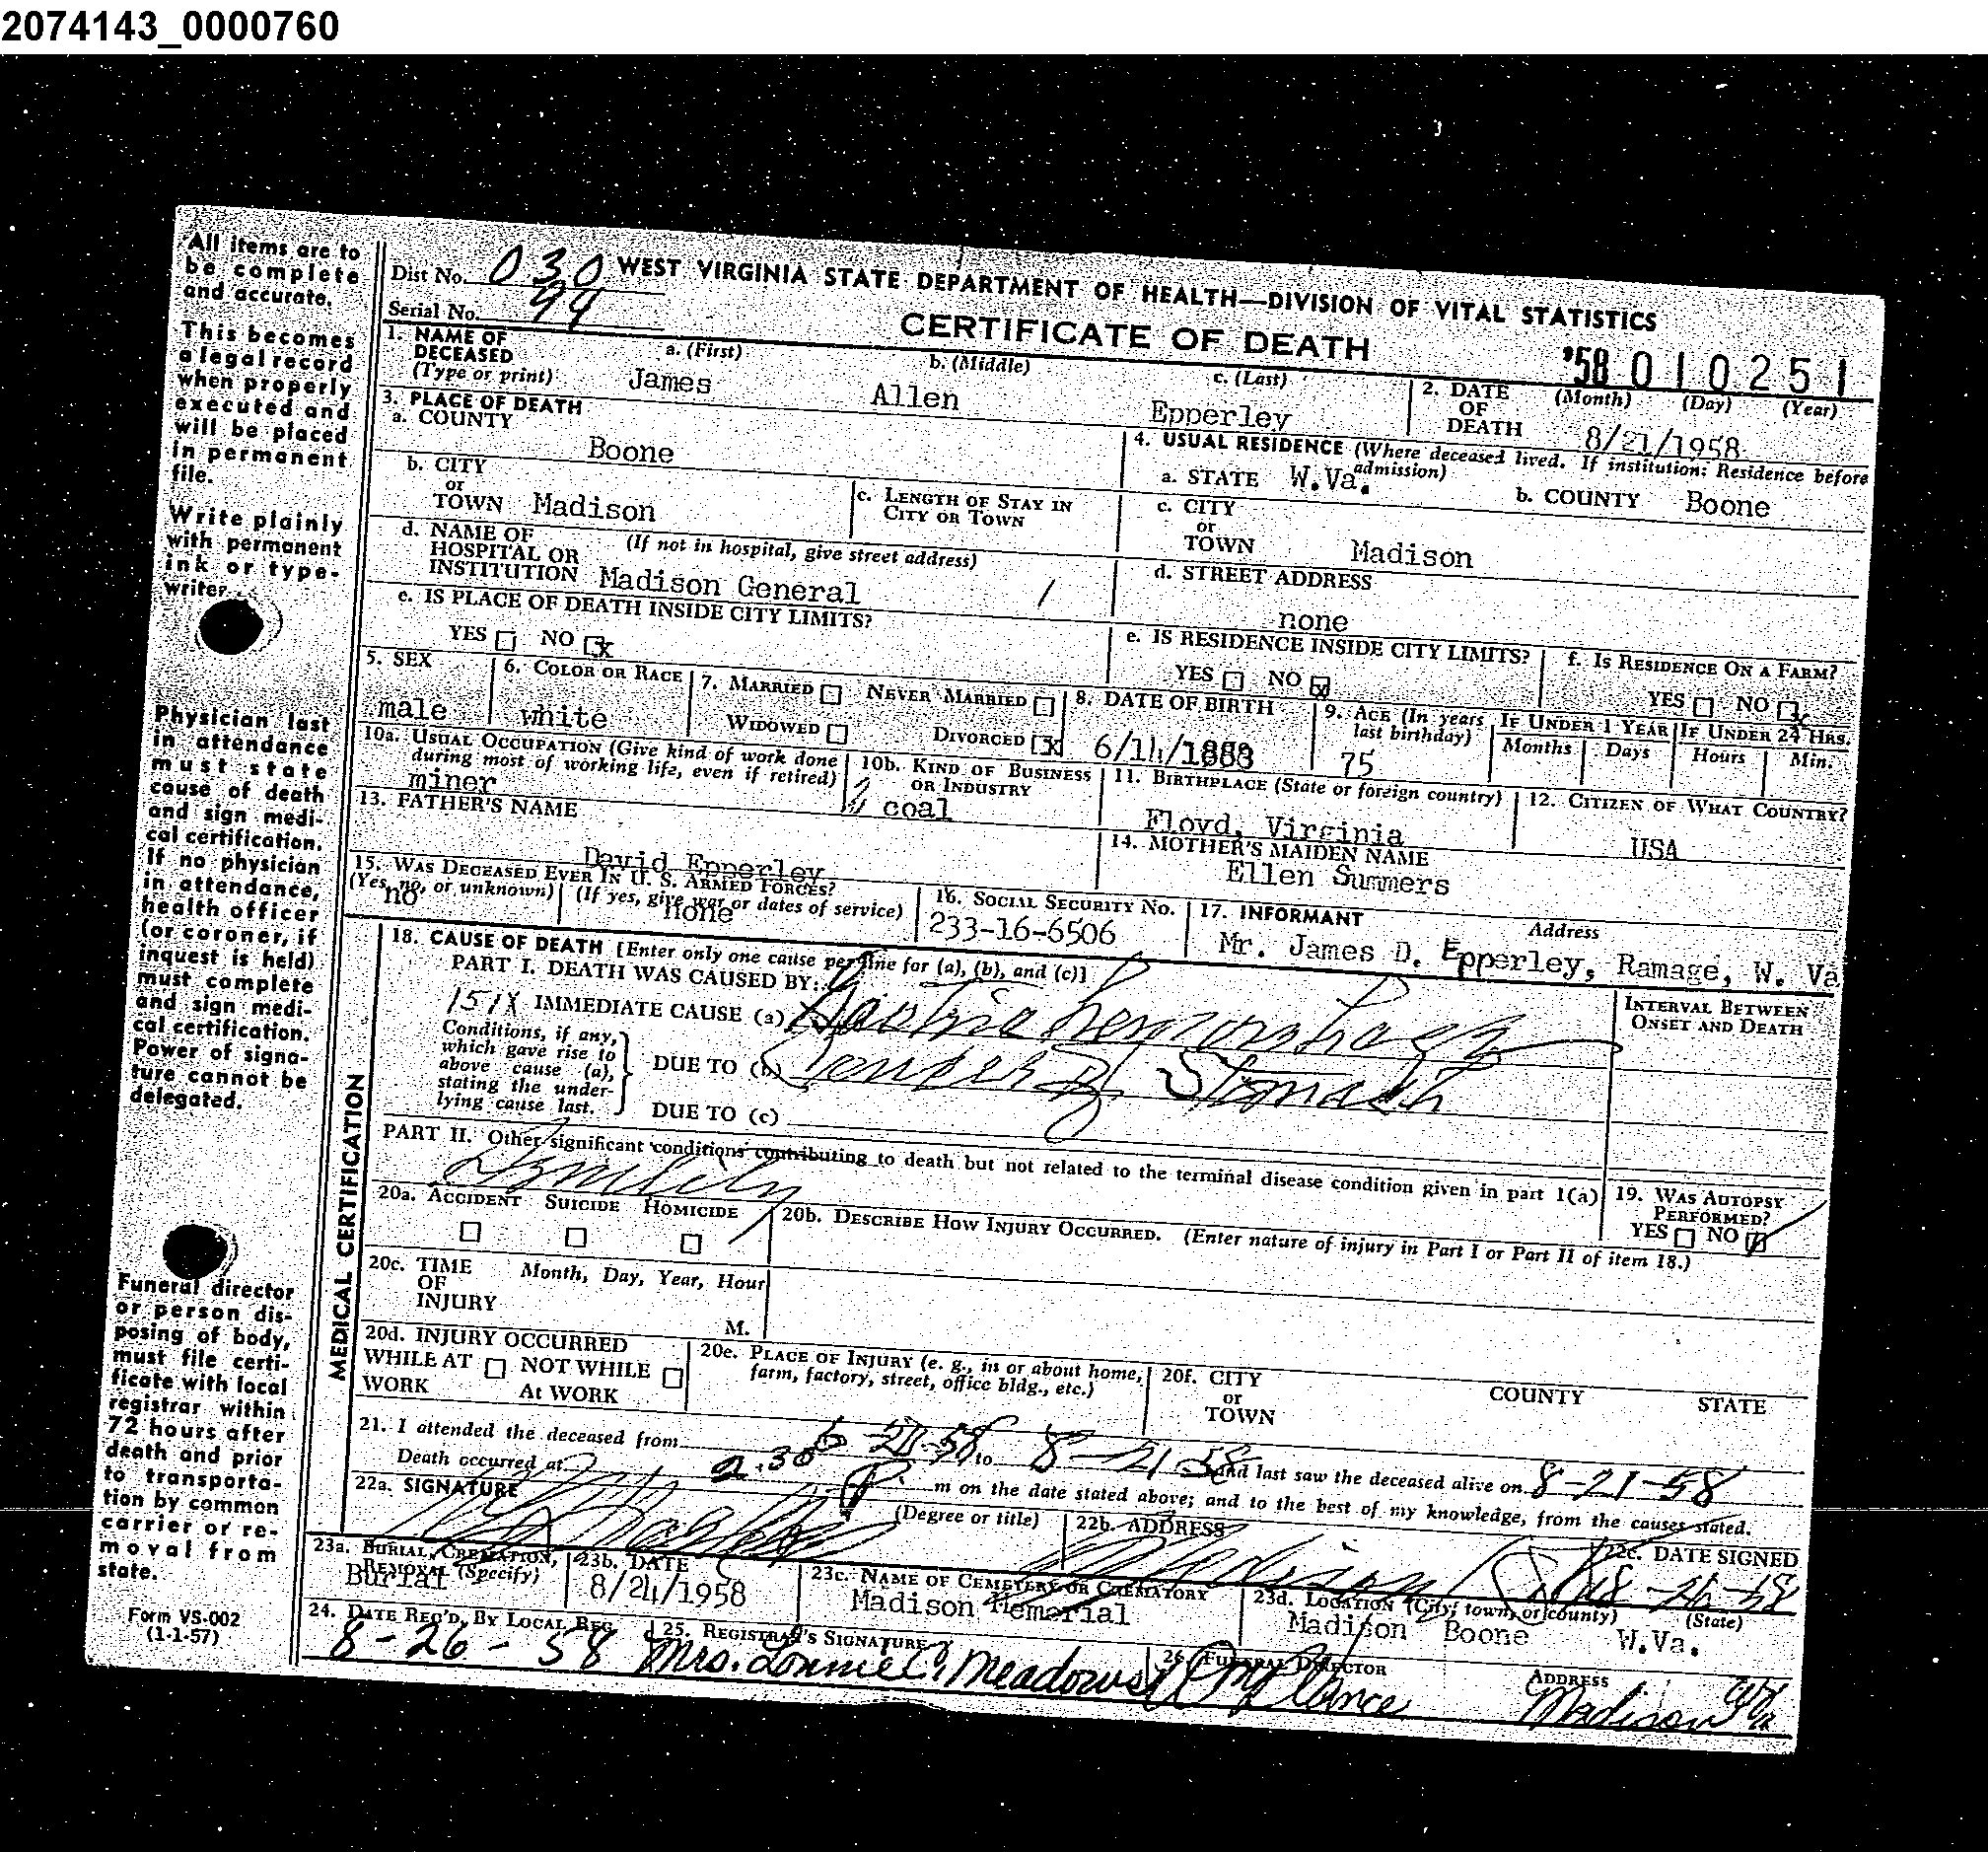 2074143_0000760
All items are to
be complete
and accurate.
This becomes
a legal record
when properly
executed and
will be placed
in permanent
file.
Write plainly
with permanent
ink or type-
writer.
Physician last
in attendance
must state
cause of death
and sign medi-
cal certification.
If no physician
in attendance,
health officer
(or coroner, if
inquest is held)
must complete
and sign medi-
cal certification.
Power of signa-
ture cannot be
delegated.
Funeral director
or person dis-
posing of body,
must file certi-
ficate with local
registrar within
72 hours after
death and prior
to transporta-
tion by common
carrier or re-
moval from
state.
Form VS-002
(1-1-57)
Dist No. 030 WEST VIRGINIA STATE DEPARTMENT OF HEALTH—DIVISION OF VITAL STATISTICS
Serial No. 94 CERTIFICATE OF DEATH
'58 010251
1. NAME OF DECEASED (Type or print) a. (First) James b. (Middle) Allen c. (Last) Epperley
2. DATE OF DEATH (Month) (Day) (Year) 8/21/1958
3. PLACE OF DEATH
a. COUNTY Boone
4. USUAL RESIDENCE (Where deceased lived. If institution: Residence before admission)
a. STATE W.Va. b. COUNTY Boone
b. CITY or TOWN Madison c. LENGTH OF STAY IN CITY OR TOWN
c. CITY or TOWN Madison
d. NAME OF HOSPITAL OR INSTITUTION (If not in hospital, give street address) Madison General /
d. STREET ADDRESS none
e. IS PLACE OF DEATH INSIDE CITY LIMITS?
YES NO x
e. IS RESIDENCE INSIDE CITY LIMITS? YES NO x
f. IS RESIDENCE ON A FARM? YES NO x
5. SEX male 6. COLOR OR RACE white 7. MARRIED NEVER MARRIED WIDOWED DIVORCED x
8. DATE OF BIRTH 6/14/1883 9. AGE (In years last birthday) 75 IF UNDER 1 YEAR Months Days IF UNDER 24 HRS. Hours Min.
10a. USUAL OCCUPATION (Give kind of work done during most of working life, even if retired) miner
10b. KIND OF BUSINESS OR INDUSTRY coal
11. BIRTHPLACE (State or foreign country) Floyd, Virginia
12. CITIZEN OF WHAT COUNTRY? USA
13. FATHER'S NAME David Epperley
14. MOTHER'S MAIDEN NAME Ellen Summers
15. WAS DECEASED EVER IN U. S. ARMED FORCES?
(Yes, no, or unknown) no (If yes, give war or dates of service) none
16. SOCIAL SECURITY NO. 233-16-6506
17. INFORMANT Address
Mr. James D. Epperley, Ramage, W. Va
MEDICAL CERTIFICATION
18. CAUSE OF DEATH [Enter only one cause per line for (a), (b), and (c)]
PART I. DEATH WAS CAUSED BY:
INTERVAL BETWEEN ONSET AND DEATH
151X IMMEDIATE CAUSE (a) Gastric hemorrhage
Conditions, if any, which gave rise to above cause (a), stating the underlying cause last.
DUE TO (b) Cancer of Stomach
DUE TO (c)
PART II. Other significant conditions contributing to death but not related to the terminal disease condition given in part 1(a)
19. WAS AUTOPSY PERFORMED? YES NO
20a. ACCIDENT SUICIDE HOMICIDE
20b. DESCRIBE HOW INJURY OCCURRED. (Enter nature of injury in Part I or Part II of item 18.)
20c. TIME OF INJURY Month, Day, Year, Hour M.
20d. INJURY OCCURRED
WHILE AT WORK NOT WHILE At WORK
20e. PLACE OF INJURY (e. g., in or about home, farm, factory, street, office bldg., etc.)
20f. CITY or TOWN COUNTY STATE
21. I attended the deceased from 58, to 8-21-58 and last saw the deceased alive on 8-21-58
Death occurred at 2:30 P. m on the date stated above; and to the best of my knowledge, from the causes stated.
22a. SIGNATURE (Degree or title) 22b. ADDRESS Madison 22c. DATE SIGNED
23a. BURIAL, CREMATION, REMOVAL (Specify) Burial
23b. DATE 8/24/1958
23c. NAME OF CEMETERY OR CREMATORY Madison Memorial
23d. LOCATION (City, town, or county) (State) Madison Boone W.Va.
24. DATE REC'D. BY LOCAL REG. 8-26-58
25. REGISTRAR'S SIGNATURE Mrs. Lonnie C. Meadows
26. FUNERAL DIRECTOR ADDRESS Madison